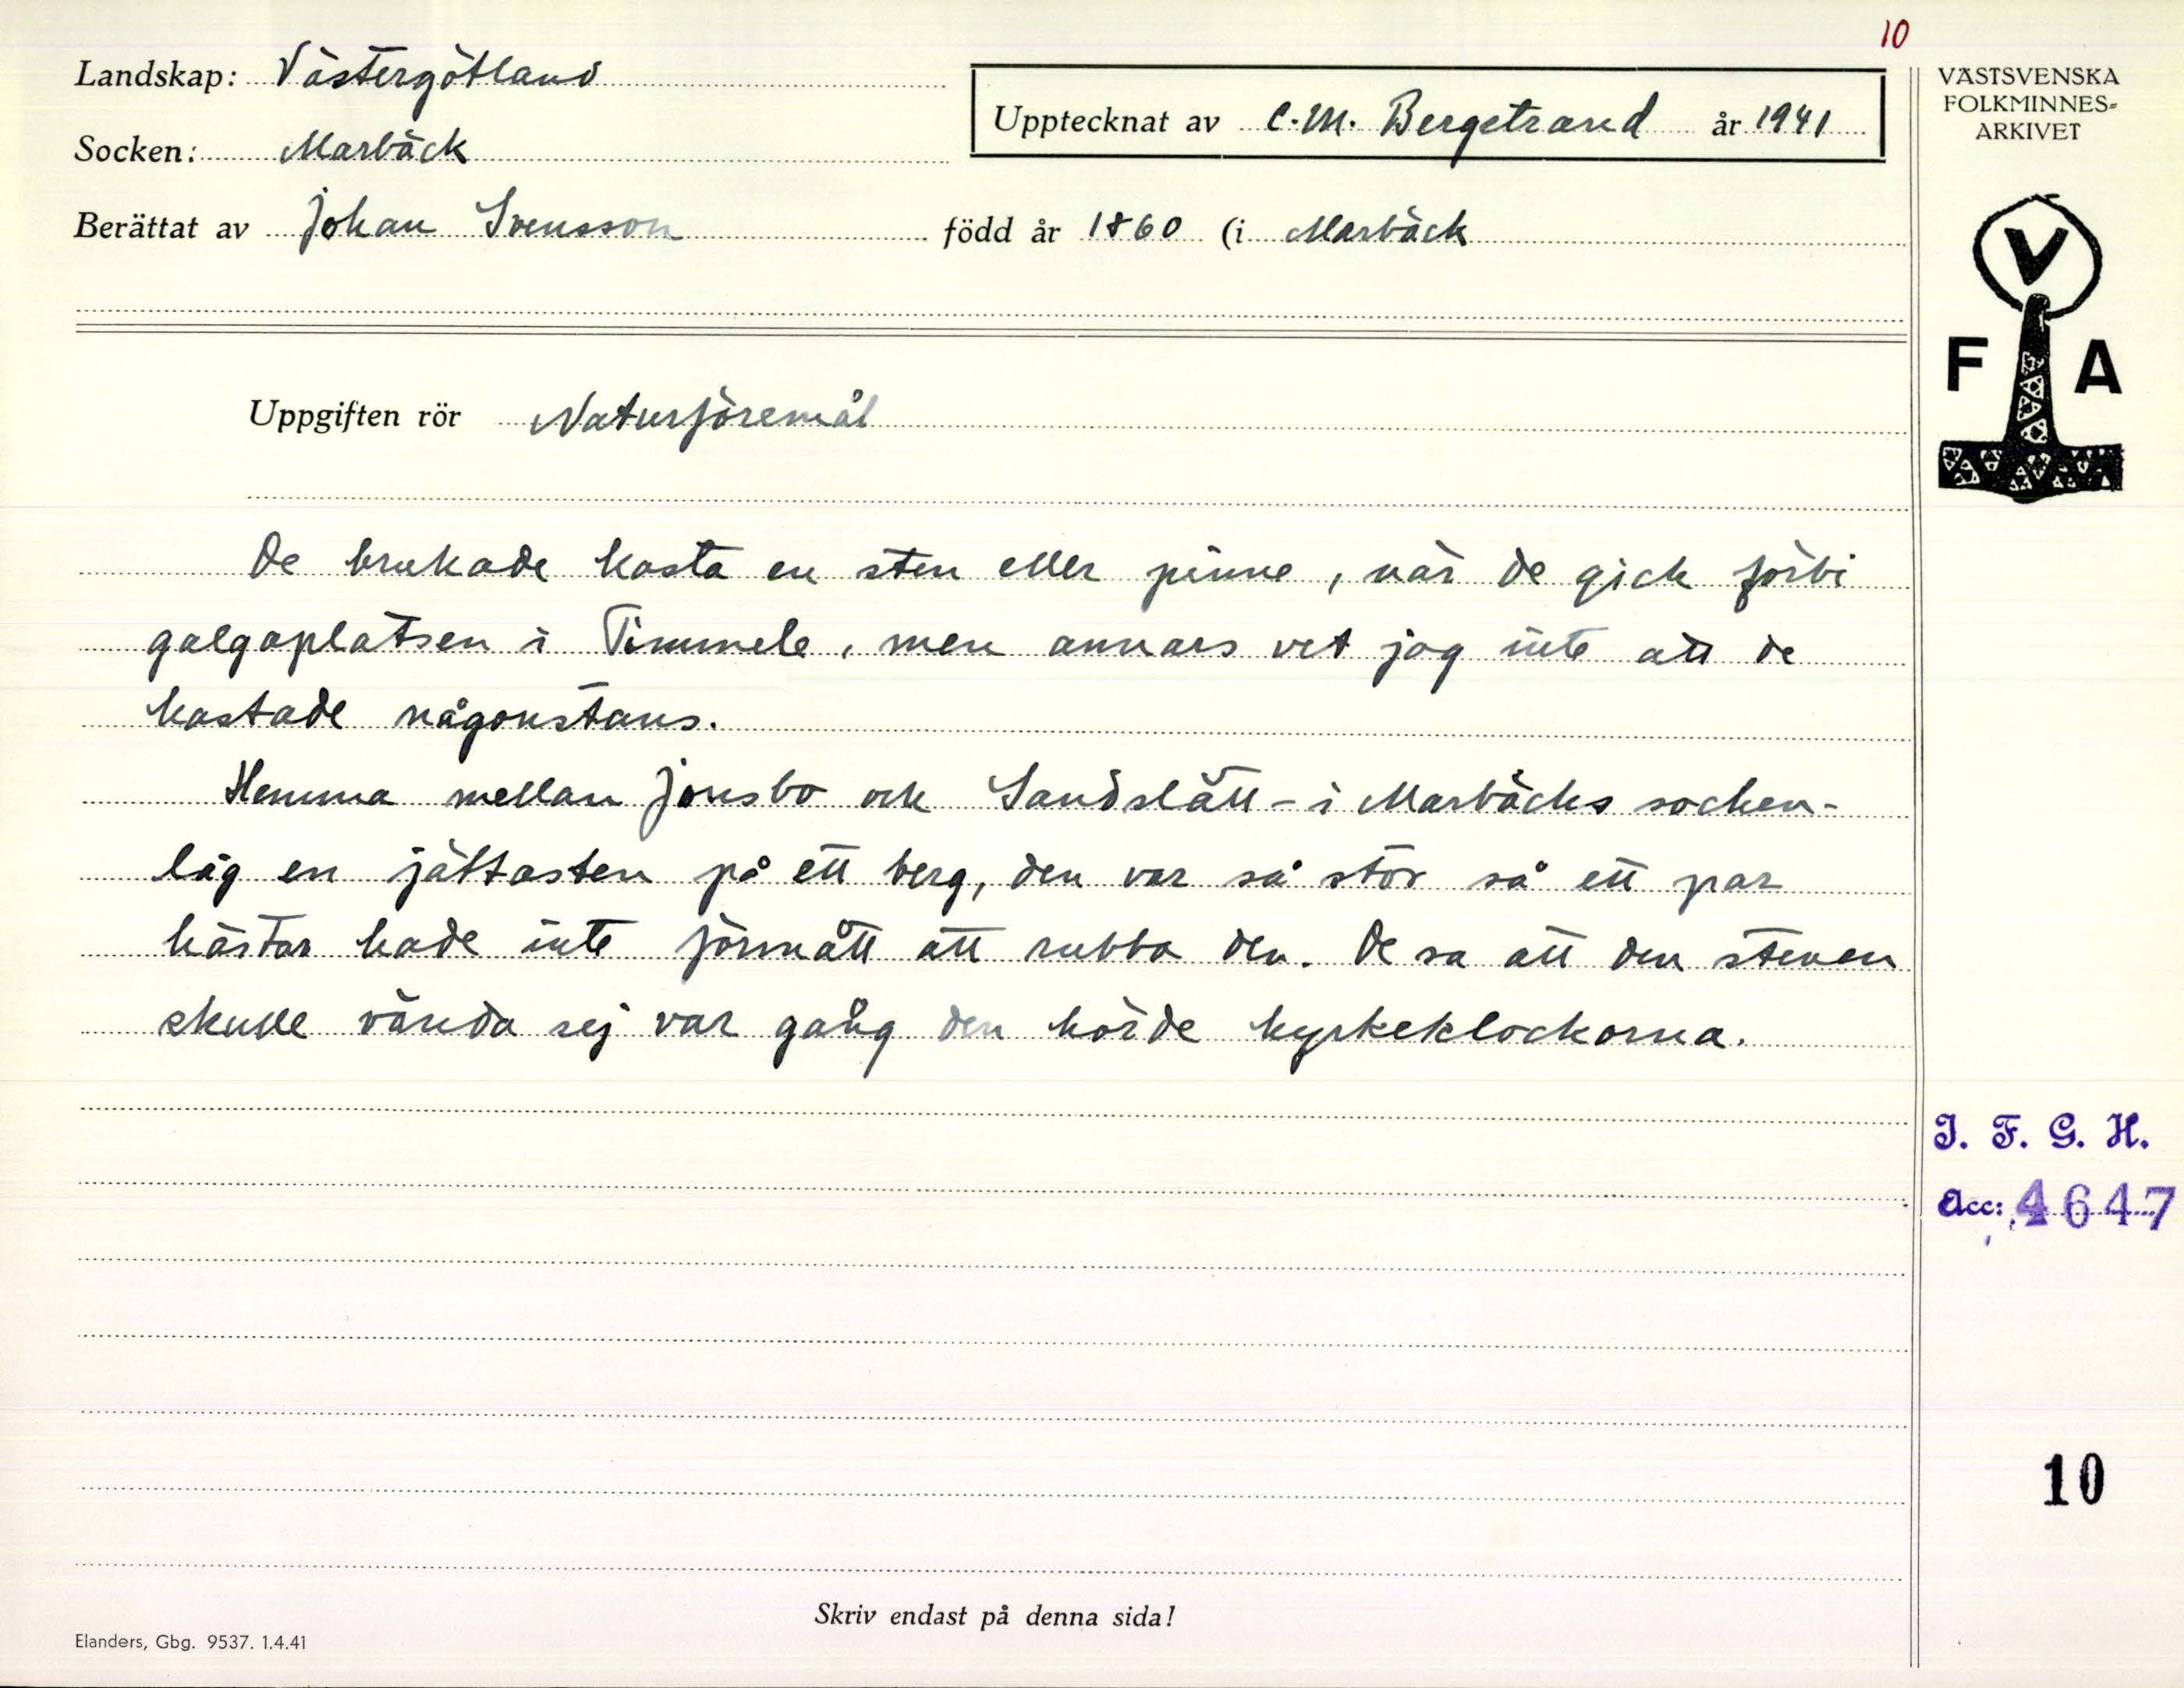 10
Landskap: Västergötland
Upptecknat av C.M. Bergstrand år 1941
VÄSTSVENSKA
FOLKMINNES=
ARKIVET
Socken: Marbäck
Berättat av Johan Svensson född år 1860 (i Marbäck
V
F A
Uppgiften rör Naturföremål
De brukade kasta en sten eller pinne, när de gick förbi
galgaplatsen i Timmele, men annars vet jag inte att de
kastade någonstans.
Hemma mellan Jonsbo och Sandslätt - i Marbäcks socken -
låg en jättasten på ett berg, den var så stor så ett par
hästar hade inte förmått att rubba den. De sa att den stenen
skulle vända sej var gång den hörde kyrkeklockorna.
I. F. G. H.
Acc: 4647
10
Skriv endast på denna sida!
Elanders, Gbg. 9537. 1.4.41